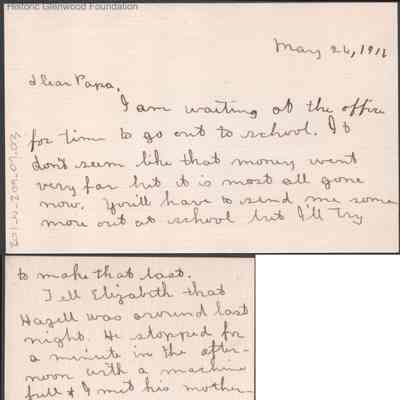 Historic Glenwood Foundation
May 26, 1911
Dear Papa,
I am waiting at the office
for time to go out to school. It
don't seem like that money went
very far but it is most all gone
now. You'll have to send me some
more out at school but I'll try
to make that last.
Tell Elizabeth that
Hazell was around last
night. He stopped for
a minute in the after-
noon with a machine
full & I met his mother-